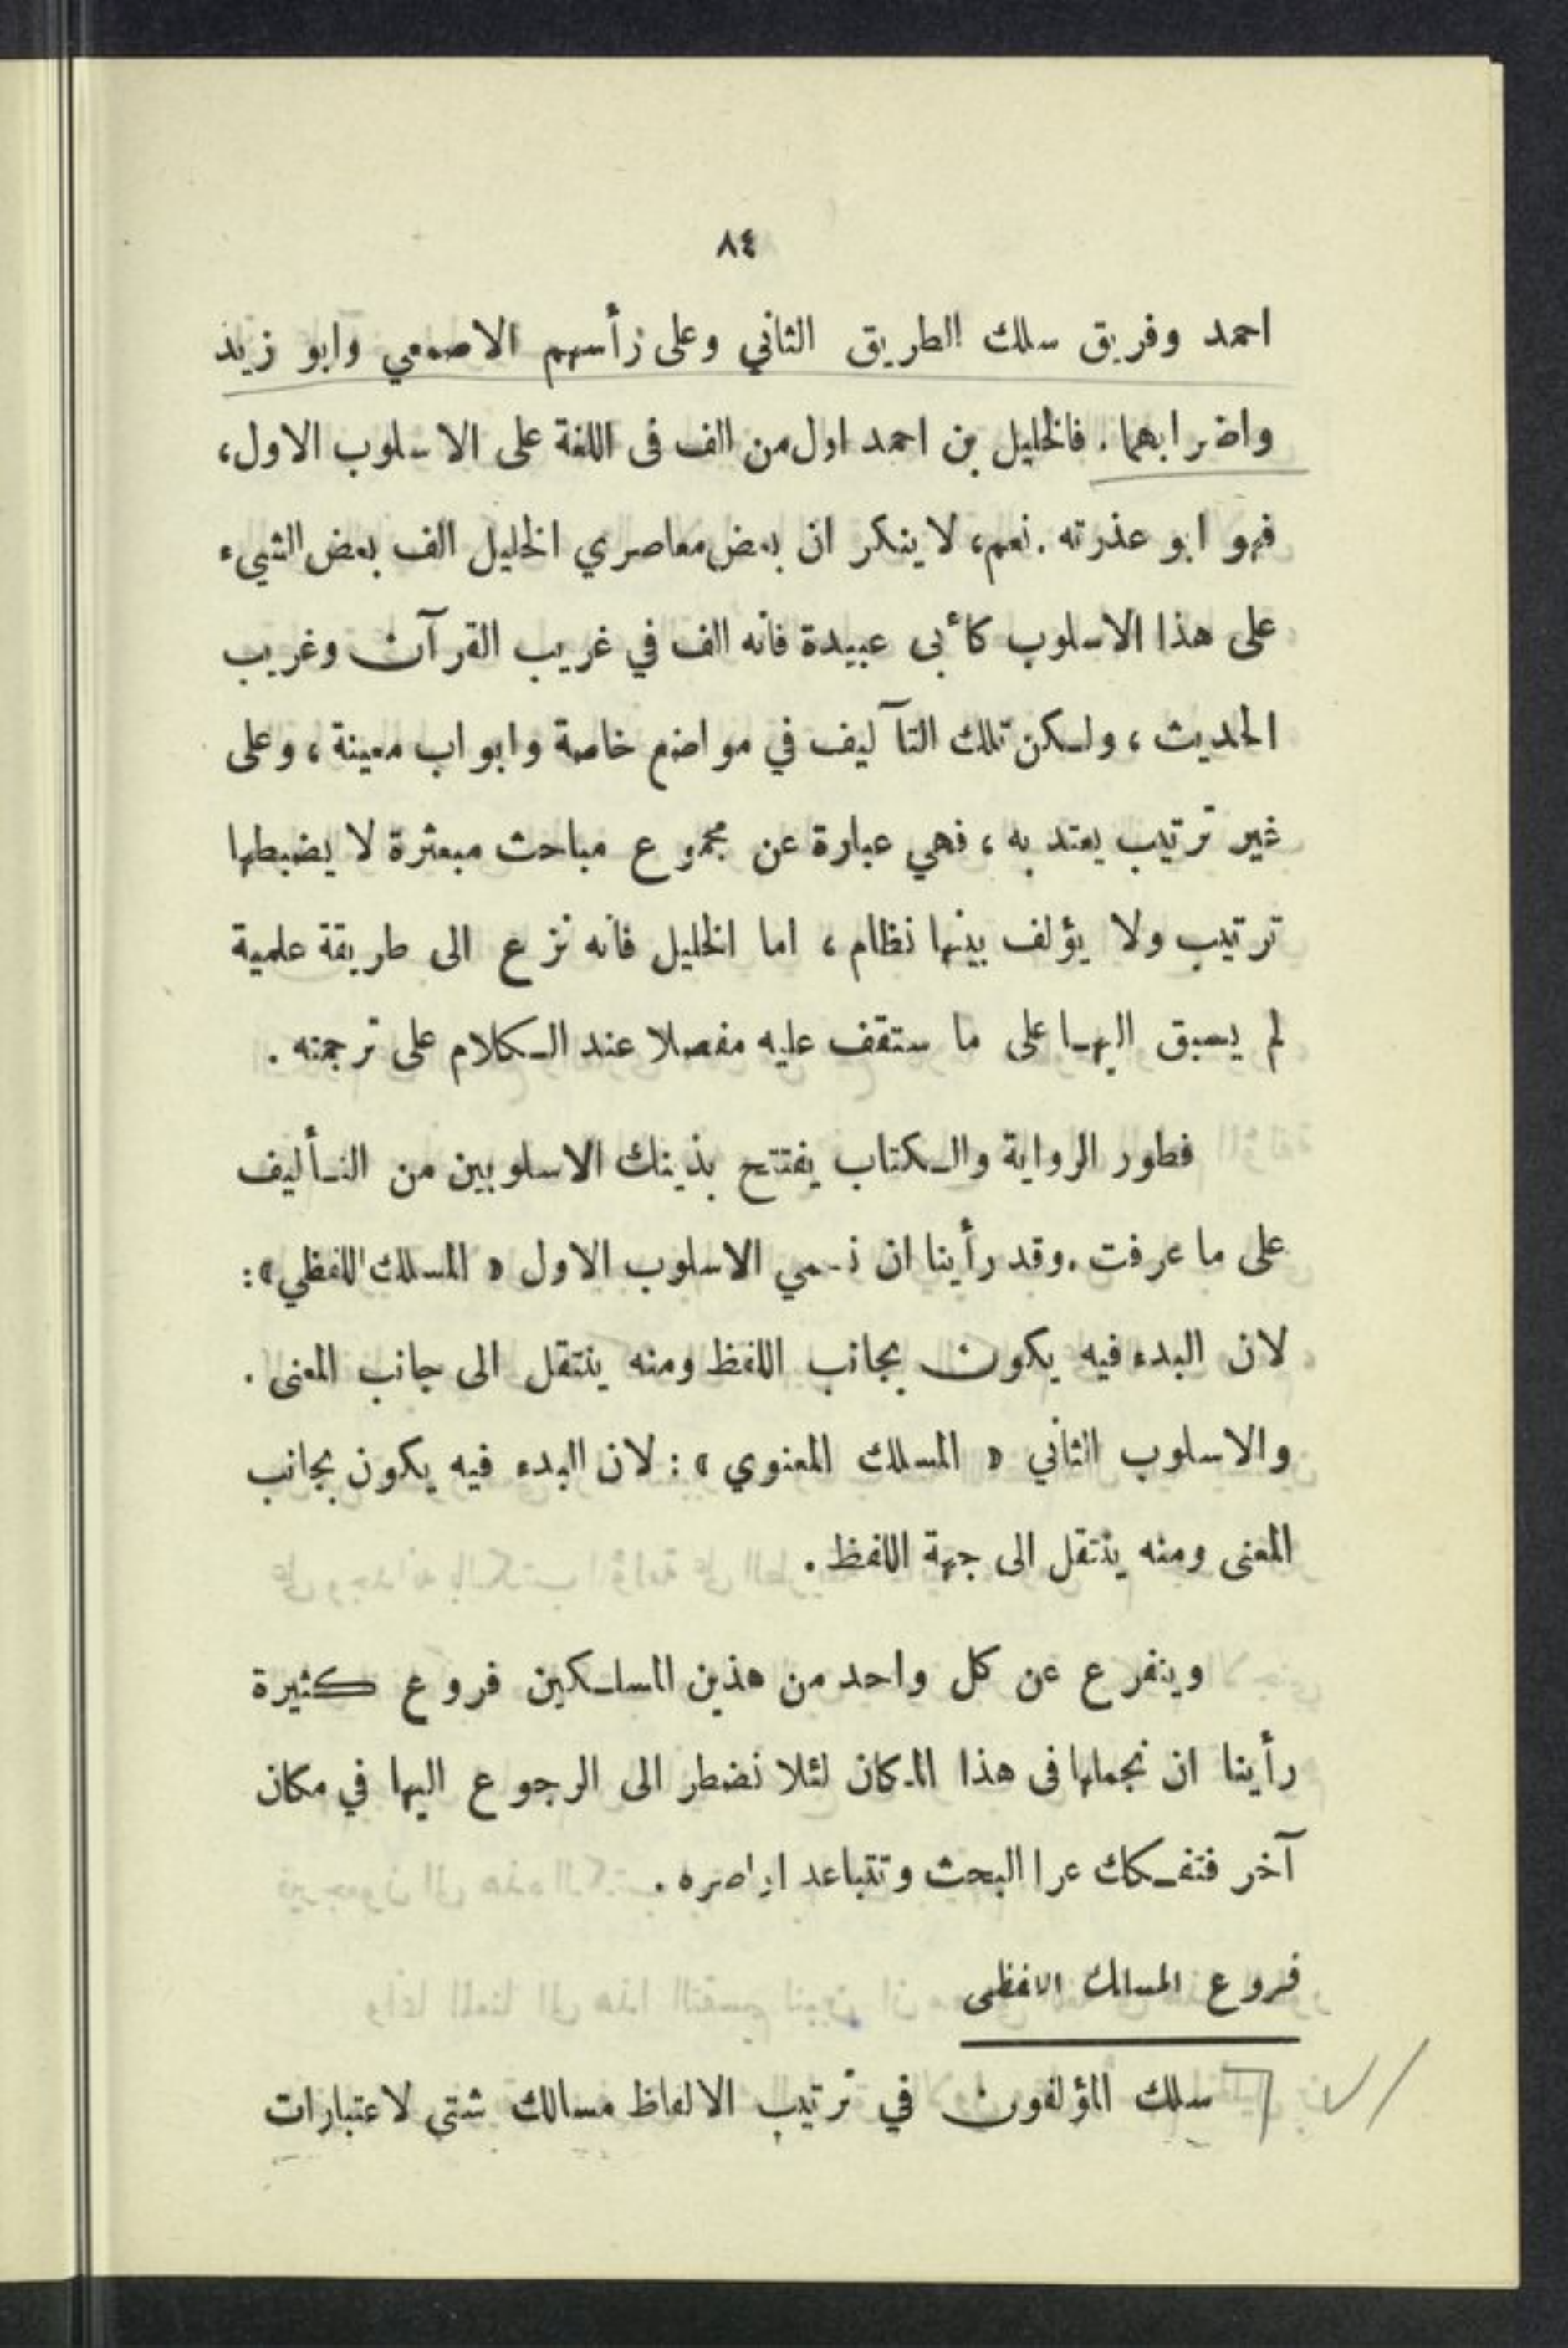 ٨٤
احمد وفريق سلك الطريق الثاني وعلى رأسهم الاصمعي وابو زيد
واضرابهما . فالخليل بن احمد اول من الف فى اللغة على الاسلوب الاول،
فهو ابو عذرته . نعم، لا ينكر ان بعض معاصري الخليل الف بعض الشيء
على هذا الاسلوب كأبى عبيدة فانه الف في غريب القرآن وغريب
الحديث ، ولكن تلك التآليف في مواضع خاصة وابواب معينة ، وعلى
غير ترتيب يعتد به ، فهي عبارة عن مجموع مباحث مبعثرة لا يضبطها
ترتيب ولا يؤلف بينها نظام ، اما الخليل فانه نزع الى طريقة علمية
لم يسبق اليها على ما ستقف عليه مفصلا عند الكلام على ترجمته .
فطور الرواية والكتاب يفتتح بذينك الاسلوبين من التأليف
على ما عرفت . وقد رأينا ان نسمي الاسلوب الاول « المسلك اللفظي » :
لان البدء فيه يكون بجانب اللفظ ومنه ينتقل الى جانب المعنى .
والاسلوب الثاني « المسلك المعنوي » : لان البدء فيه يكون بجانب
المعنى ومنه ينتقل الى جهة اللفظ .
ويتفرع عن كل واحد من هذين المسلكين فروع كثيرة
رأينا ان نجملها فى هذا المكان لئلا نضطر الى الرجوع اليها في مكان
آخر فتفكك عرا البحث وتتباعد اواصره .
فروع المسلك اللفظى
سلك المؤلفون في ترتيب الالفاظ مسالك شتى لاعتبارات